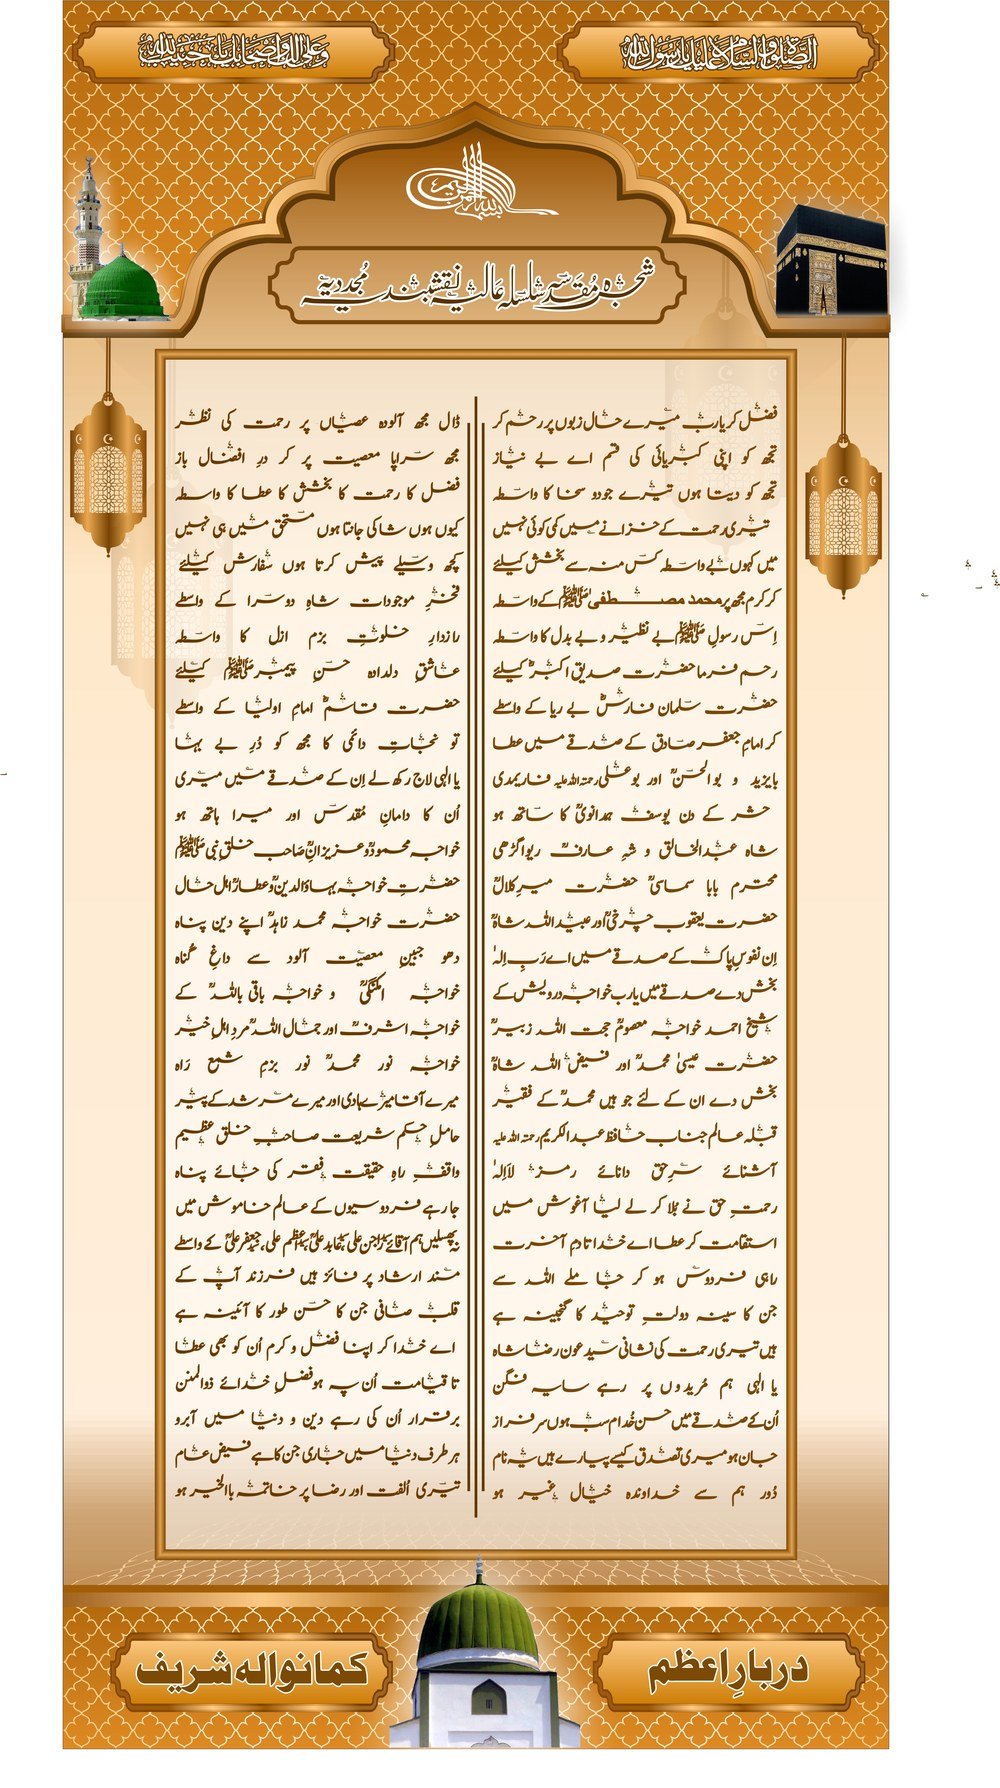 الصلوٰۃ والسلام علیک یا رسول اللہ
وعلیٰ الک واصحابک یا حبیب اللہ
شجرہ مقدسہ سلسلہ عالیہ نقشبندیہ مُجددیہ
فضل کر یارب میرے حال زبوں پر رحم کر
ڈال مجھ آلودہ عصیاں پر رحمت کی نظر
تجھ کو اپنی کبریائی کی قسم اے بے نیاز
مجھ سراپا معصیت پر کر درِ افضال باز
تجھ کو دیتا ہوں تیرے جود و سخا کا واسطہ
فضل کا رحمت کا بخشش کا عطا کا واسطہ
تیری رحمت کے خزانے میں کمی کوئی نہیں
کیوں ہوں شاکی جانتا ہوں مستحق میں ہی نہیں
میں کہوں بے واسطہ کس منہ سے بخشش کیلئے
کچھ وسیلے پیش کرتا ہوں سفارش کیلئے
کر کرم مجھ پر محمد مصطفی ﷺ کے واسطہ
فخرِ موجودات شاہِ دوسرا کے واسطے
اِس رسول ﷺ بے نظیر و بے بدل کا واسطہ
رازدارِ خلوتِ بزم ازل کا واسطہ
رحم فرما حضرت صدیق اکبرؓ کیلئے
عاشقِ دلدادہ حسنِ پیمبر ﷺ کیلئے
حضرت سلمان فارسؓ بے ریا کے واسطے
حضرت قاسمؓ امامِ اولیا کے واسطے
کر امامِ جعفر صادق کے صدقے میں عطا
تو نجاتِ دائمی کا مجھ کو دُرِ بے بہا
بایزید و بوالحسنؒ اور بوعلی رحمتہ اللہ علیہ فاریمدی
یا الٰہی لاج رکھ لے اِن کے صدقے میں میری
حشر کے دن یوسف ہمدانویؒ کا ساتھ ہو
اُن کا دامانِ مُقدس اور میرا ہاتھ ہو
شاہ عبدالخالق و شہِ عارفؒ ریواگڑھی
خواجہ محمودؒ و عزیزانؒ صاحب خلقِ نبی ﷺ
محترم بابا سماسیؒ حضرت میر کلالؒ
حضرتِ خواجہ بہاؤالدینؒ و عطارؒ اہل حال
حضرت یعقوب چرخیؒ اور عبیداللہ شاہؒ
حضرت خواجہ محمد زاہدؒ اپنے دین پناہ
اِن نفوسِ پاک کے صدقے میں اے رَبِ اِلہٰ
دھو جبینِ معصیت آلود سے داغِ گُناہ
بخش دے صدقے میں یارب خواجہ درویش کے
خواجہ امکنگیؒ و خواجہ باقی باللہؒ کے
شیخ احمد خواجہ معصومؒ حجت اللہ زبیرؒ
خواجہ اشرفؒ اور جمال اللہؒ مردِ اہلِ خیر
حضرت عیسیٰ محمدؒ اور فیض اللہ شاہؒ
خواجہ نور محمدؒ نور بزمِ شمع رَاہ
بخش دے ان کے لئے جو ہیں محمدؒ کے فقیر
میرے آقا میرے ہادی اور میرے مرشد کے پیر
قبلہ عالم جناب حافظ عبدالکریم رحمتہ اللہ علیہ
حاملِ حکم شریعت صاحبِ خلق عظیم
آشنائے سرِحق دانائے رمز لاَاِلہٰ
واقفِ راہِ حقیقت فقر کی جائے پناہ
رحمتِ حق نے بُلا کر لے لیا آغوش میں
جا رہے فردوسیوں کے عالم خاموش میں
استقامت کر عطا اے خدا تا دمِ آخرت
راہی فردوس ہو کر جا ملے اللہ سے
مسند ارشاد پر فائز ہیں فرزند آپ کے
جن کا سینہ دولتِ توحید کا گنجینہ ہے
قلب صافی جن کا حسن طور کا آئینہ ہے
ہیں تیری رحمت کی نشانی سید عون رضا شاہ
اے خدا کر اپنا فضل و کرم اُن کو بھی عطا
یا الٰہی ہم مُریدوں پر رہے سایہ فگن
تا قیامت اُن پہ ہو فضلِ خدائے ذوالمنن
اُن کے صدقے میں حسن خُدام سب ہوں سرفراز
برقرار اُن کی رہے دین و دنیا میں آبرو
جان ہو میری تصدق کیسے پیارے ہیں یہ نام
ہر طرف دنیا میں جاری جن کا ہے فیض عام
دُور ہم سے خداوندہ خیال غیر ہو
تیری اُلفت اور رضا پر خاتمہ باالخیر ہو
دربارِ اعظم
کمانوالہ شریف